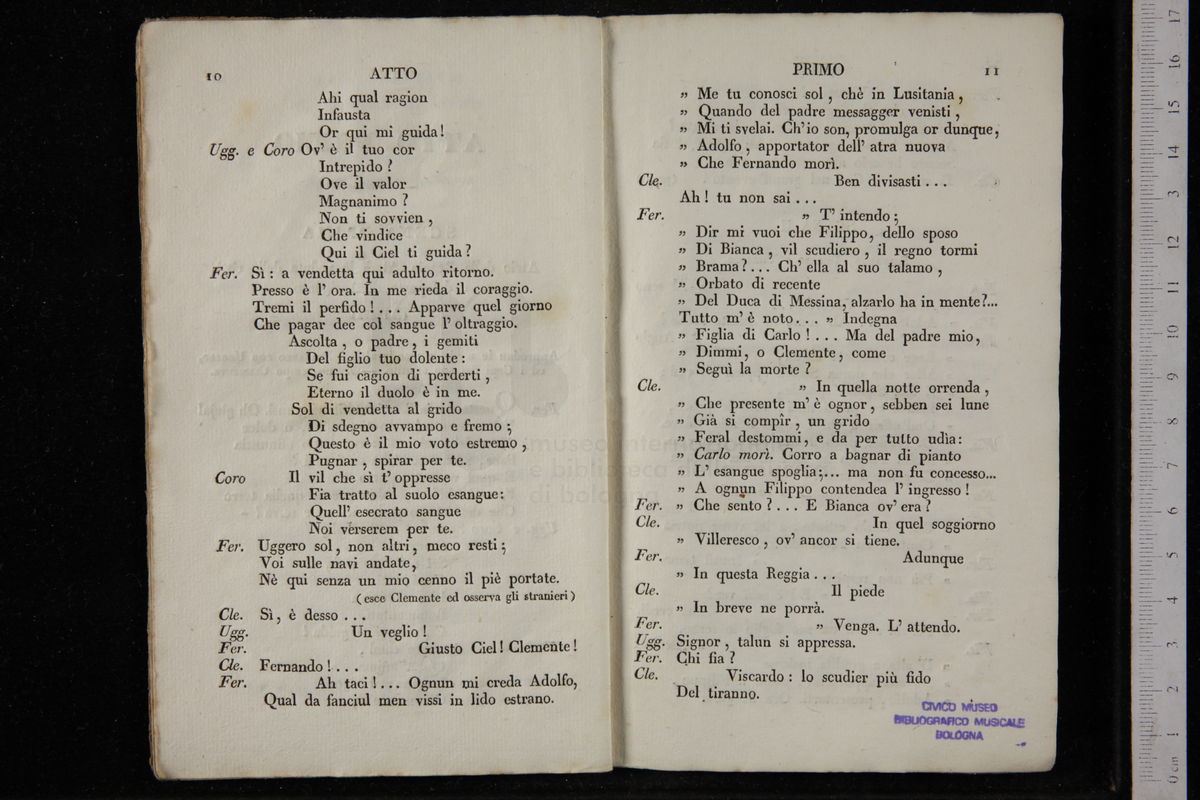 10 ATTO
Ahi qual ragion
Infausta
Or qui mi guida!
Ugg. e Coro Ov' è il tuo cor
Intrepido?
Ove il valor
Magnanimo?
Non ti sovvien,
Che vindice
Qui il Ciel ti guida?
Fer. Sì: a vendetta qui adulto ritorno.
Presso è l'ora. In me rieda il coraggio.
Tremi il perfido!... Apparve quel giorno
Che pagar dee col sangue l'oltraggio.
Ascolta, o padre, i gemiti
Del figlio tuo dolente:
Se fui cagion di perderti,
Eterno il duolo è in me.
Sol di vendetta al grido
Di sdegno avvampo e fremo;
Questo è il mio voto estremo,
Pugnar, spirar per te.
Coro Il vil che sì t'oppresse
Fia tratto al suolo esangue:
Quell' esecrato sangue
Noi verserem per te.
Fer. Uggero sol, non altri, meco resti;
Voi sulle navi andate,
Nè qui senza un mio cenno il piè portate.
(esce Clemente ed osserva gli stranieri)
Cle. Sì, è desso...
Ugg. Un veglio!
Fer. Giusto Ciel! Clemente!
Cle. Fernando!...
Fer. Ah taci!... Ognun mi creda Adolfo,
Qual da fanciul men vissi in lido estrano.
PRIMO 11
" Me tu conosci sol, chè in Lusitania,
" Quando del padre messagger venisti,
" Mi ti svelai. Ch'io son, promulga or dunque,
" Adolfo, apportator dell' atra nuova
" Che Fernando morì.
Cle. Ben divisasti...
Ah! tu non sai...
Fer. " T'intendo;
" Dir mi vuoi che Filippo, dello sposo
" Di Bianca, vil scudiero, il regno tormi
" Brama?... Ch'ella al suo talamo,
" Orbato di recente
" Del Duca di Messina, alzarlo ha in mente?...
Tutto m'è noto... " Indegna
" Figlia di Carlo!... Ma del padre mio,
" Dimmi, o Clemente, come
" Seguì la morte?
Cle. " In quella notte orrenda,
" Che presente m'è ognor, sebben sei lune
" Già si compîr, un grido
" Feral destommi, e da per tutto udìa:
" Carlo morì. Corro a bagnar di pianto
" L'esangue spoglia;... ma non fu concesso...
" A ognun Filippo contendea l'ingresso!
Fer. " Che sento?... E Bianca ov'era?
Cle. In quel soggiorno
" Villeresco, ov'ancor si tiene.
Fer. Adunque
" In questa Reggia...
Cle. Il piede
" In breve ne porrà.
Fer. " Venga. L'attendo.
Ugg. Signor, talun si appressa.
Fer. Chi fia?
Cle. Viscardo: lo scudier più fido
Del tiranno.
CIVICO MUSEO
BIBLIOGRAFICO MUSICALE
BOLOGNA
museo inter
e biblioteca
di bolo
0 cm 1 2 3 4 5 6 7 8 9 10 11 12 13 14 15 16 17